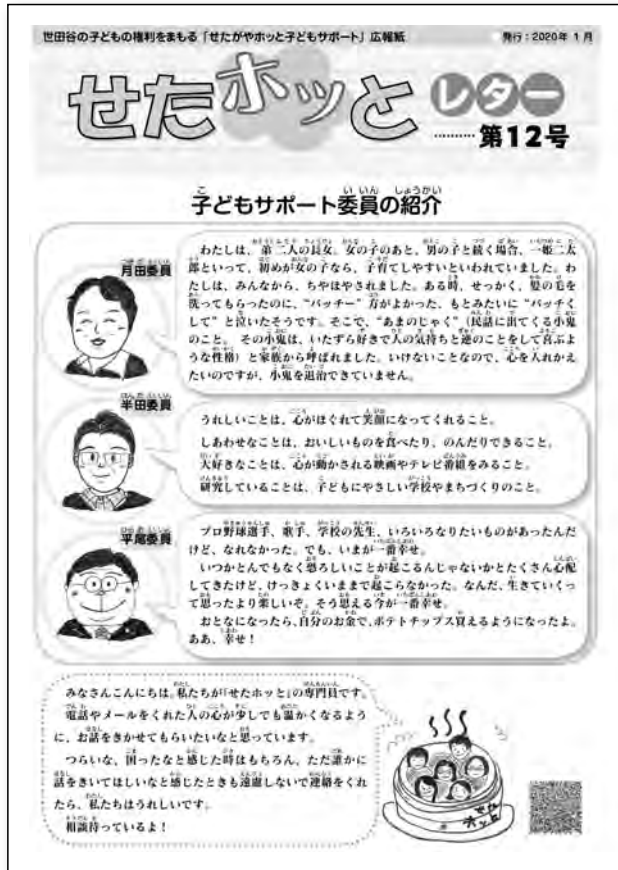 世田谷の子どもの権利をまもる「せたがやホッと子どもサポート」広報紙
発行：2020年 1月
せたホッと
レター
第12号
子どもサポート委員の紹介
月田委員
わたしは、第二人の長女。女の子のあと、男の子と続く場合、一姫二太
郎といって、初めが女の子なら、子育てしやすいといわれていました。わ
たしは、みんなから、ちやほやされました。ある時、せっかく、髪の毛を
洗ってもらったのに、“バッチー”方がよかった、もとみたいに“バッチく
して”と泣いたそうです。そこで、“あまのじゃく”（民話に出てくる小鬼
のこと。その小鬼は、いたずら好きで人の気持ちと逆のことをして喜ぶよ
うな性格）と家族から呼ばれました。いけないことなので、心を入れかえ
たいのですが、小鬼を退治できていません。
半田委員
うれしいことは、心がほぐれて笑顔になってくれること。
しあわせなことは、おいしいものを食べたり、のんだりできること。
大好きなことは、心が動かされる映画やテレビ番組をみること。
研究していることは、子どもにやさしい学校やまちづくりのこと。
平尾委員
プロ野球選手、歌手、学校の先生、いろいろなりたいものがあったんだ
けど、なれなかった。でも、いまが一番幸せ。
いつかとんでもなく恐ろしいことが起こるんじゃないかとたくさん心配
してきたけど、けっきょくいままで起こらなかった。なんだ、生きていくっ
て思ったより楽しいぞ。そう思える今が一番幸せ。
おとなになったら、自分のお金で、ポテトチップス買えるようになったよ。
ああ、幸せ！
みなさんこんにちは。私たちが「せたホッと」の専門員です。
電話やメールをくれた人の心が少しでも温かくなるよう
に、お話をきかせてもらいたいなと思っています。
つらいな、困ったなと感じた時はもちろん、ただ誰かに
話をきいてほしいなと感じたときも遠慮しないで連絡をくれ
たら、私たちはうれしいです。
相談待っているよ！
せた
ホッと